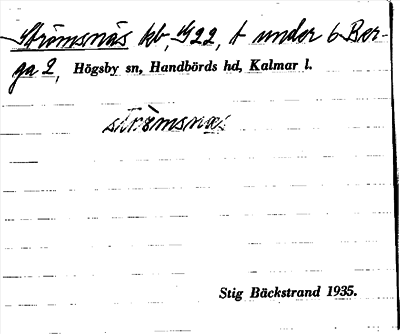 Strömsnäs kb, 1/922, t under 6 Ber-
ga 2, Högsby sn, Handbörds hd, Kalmar l.
strömsnäs
Stig Bäckstrand 1935.